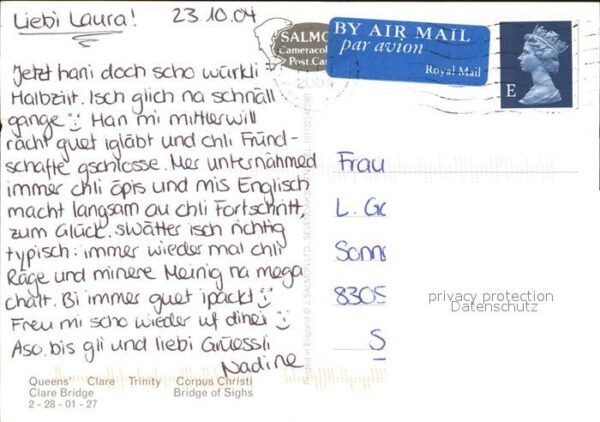 Liebi Laura! 23.10.04
Jetzt hani doch scho würkli
Halbziit. Isch glich na schnäll
gange. Han mi mittlerwill
rächt guet igläbt und chli Fründ-
schafte gschlosse. Mer unternähmed
immer chli öpis und mis Englisch
macht langsam au chli Fortschritt,
zum Glück. sWätter isch richtig
typisch: immer wieder mal chli
Räge und minere Meinig na mega
chalt. Bi immer guet ipackt
Freu mi scho wieder uf dinei
Aso, bis gli und liebi Grüessli
Nadine
SALMON
Cameracolour
Post Card
BY AIR MAIL
par avion
Royal Mail
E
Frau
L. Go
Sonn
8305
S
privacy protection
Datenschutz
Queens' Clare Trinity Corpus Christi
Clare Bridge Bridge of Sighs
2 - 28 - 01 - 27